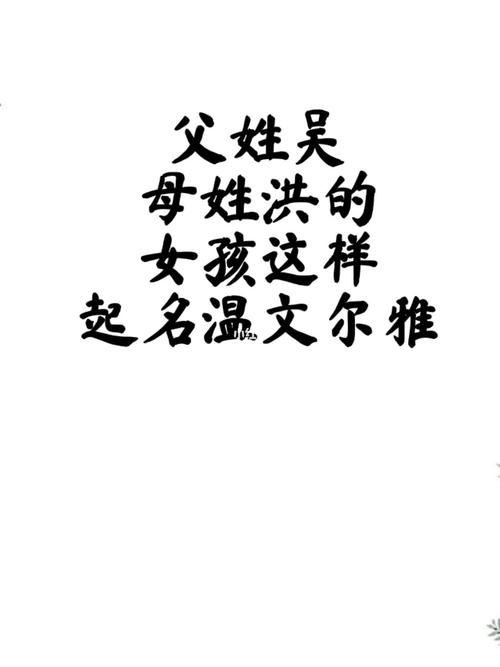 父姓吴
母姓洪的
女孩这样
起名温文尔雅